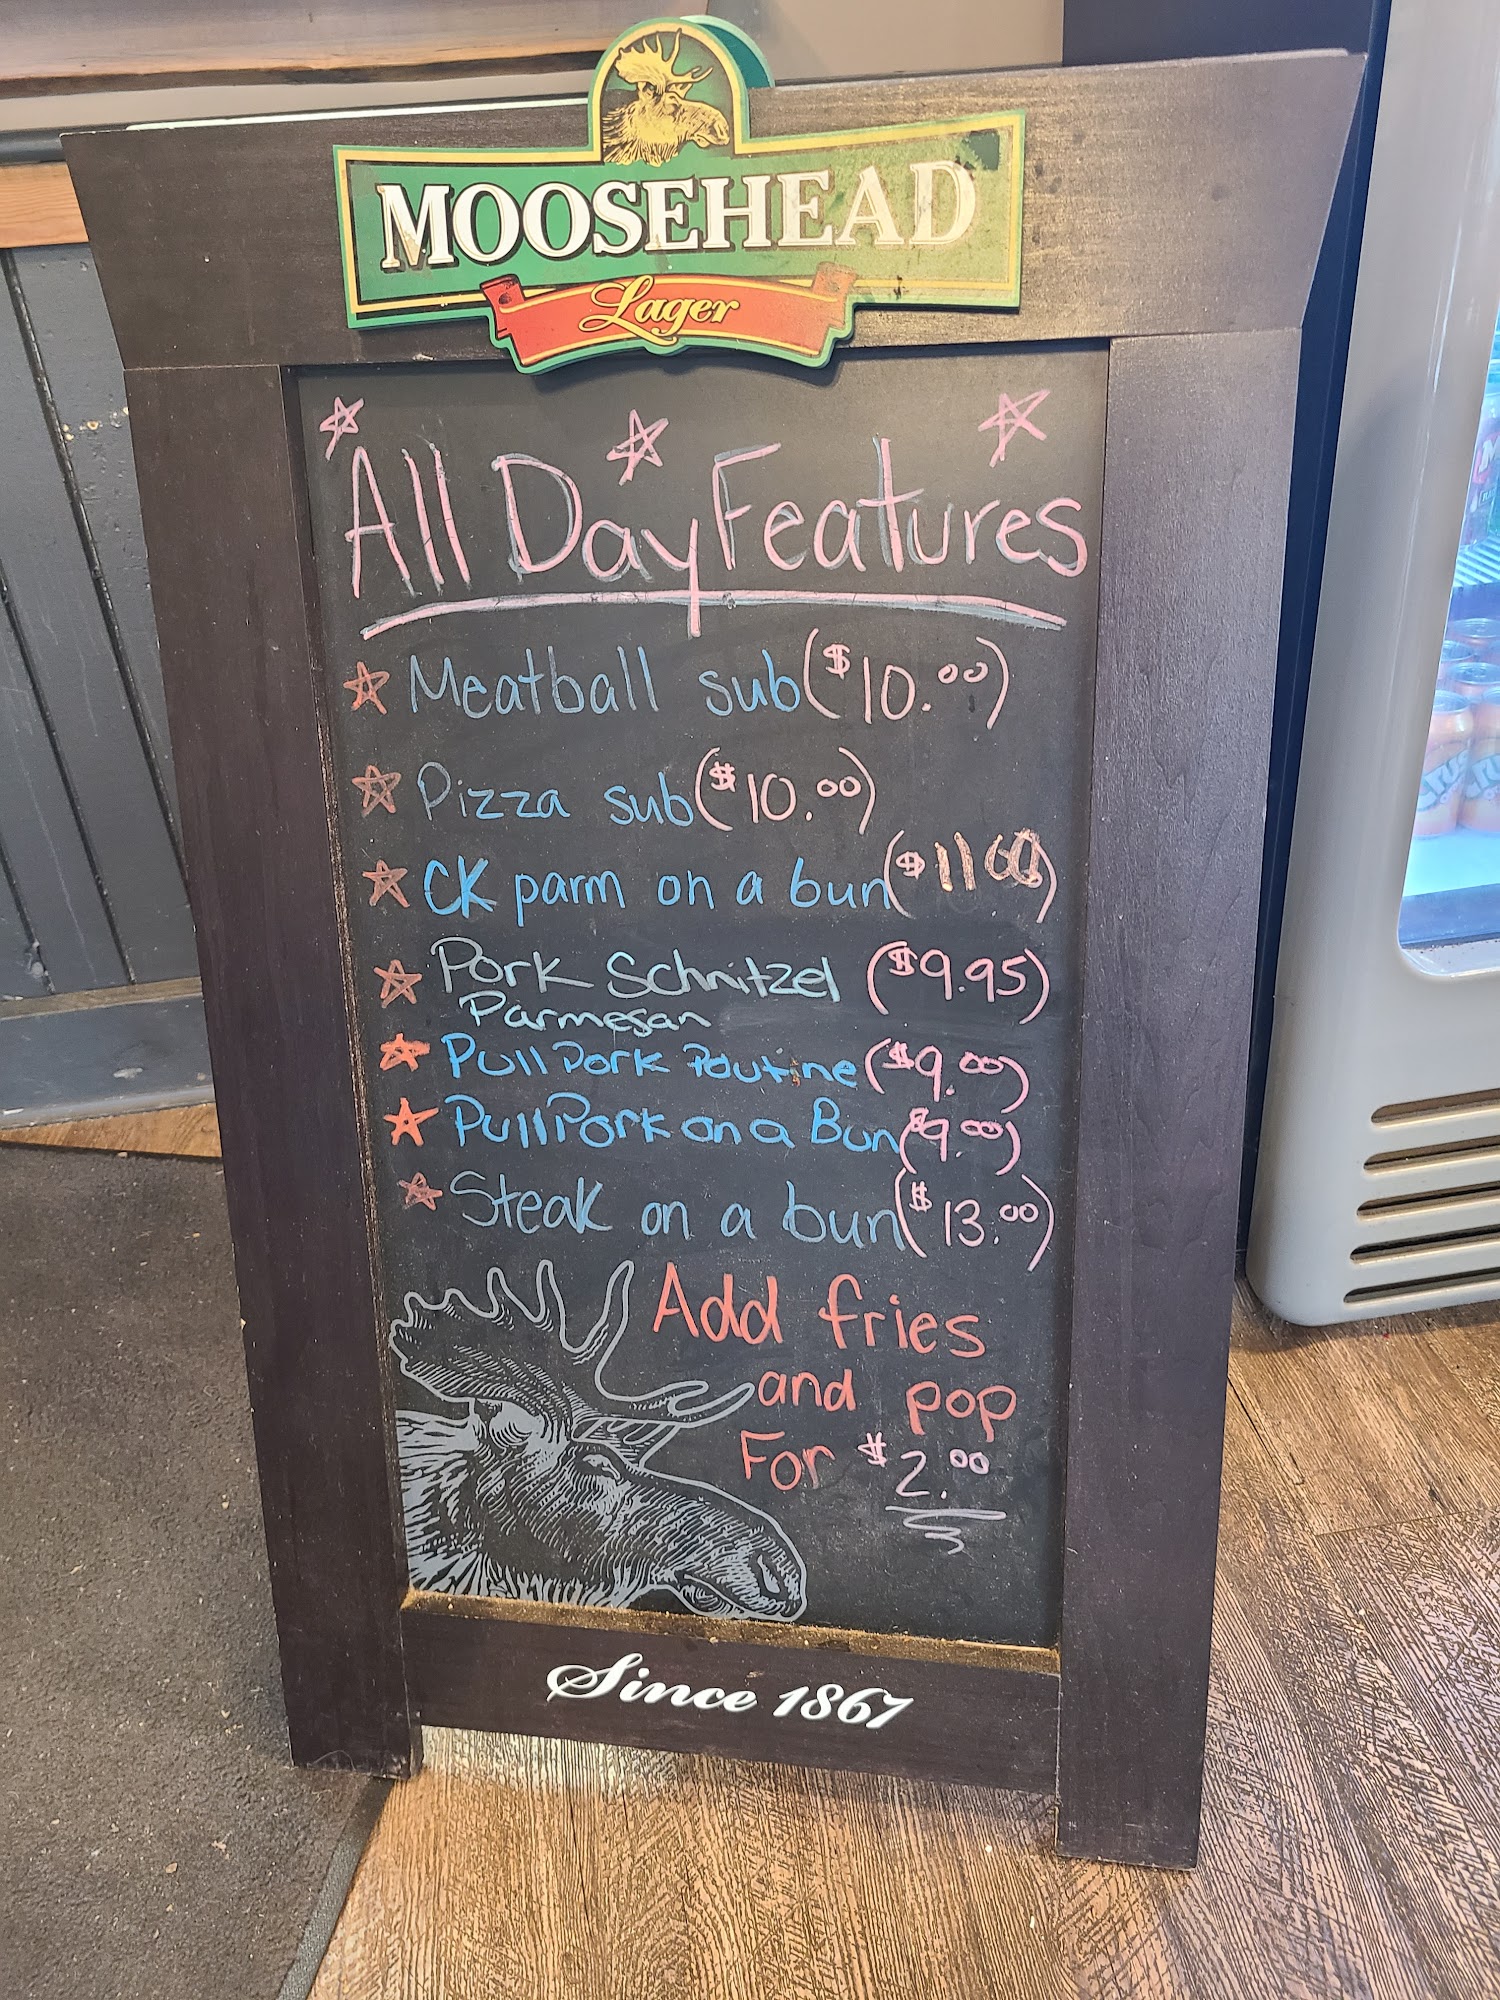 MOOSEHEAD
Lager
All Day Features
Meatball sub ($10.00)
Pizza sub ($10.00)
CK parm on a bun ($11.00)
Pork Schnitzel ($9.95)
Parmesan
Pull Pork Poutine ($9.00)
Pull Pork on a Bun ($9.00)
Steak on a bun ($13.00)
Add fries
and pop
For $2.00
Since 1867